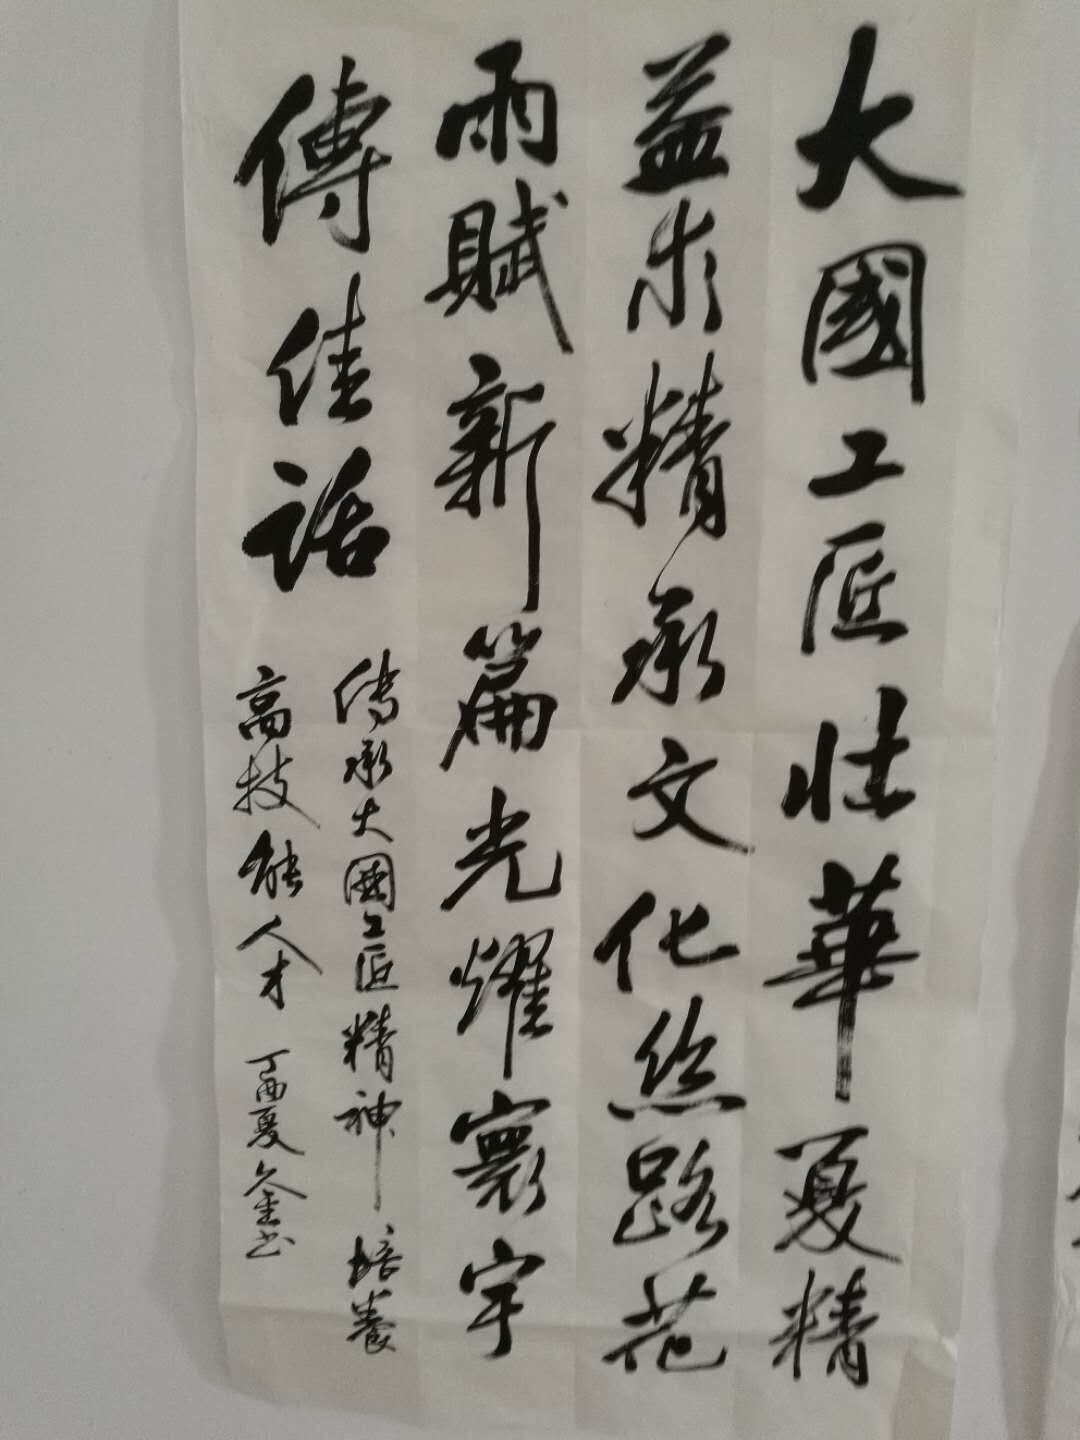 大國工匠壯華夏精
益求精承文化絲路花
雨賦新篇光耀寰宇
傳佳話
传承大國工匠精神培養
高技能人才 丁酉夏金书